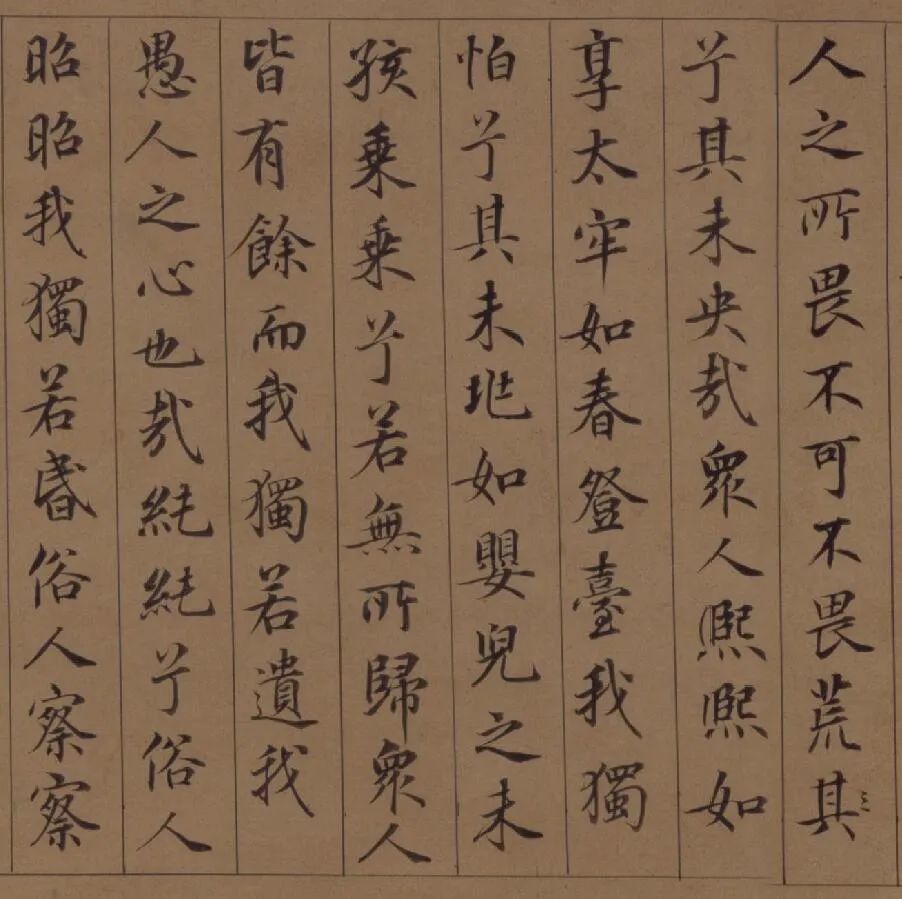 人之所畏不可不畏荒其
兮其未央哉衆人熙熙如
享太牢如春登臺我獨
怕兮其未兆如嬰兒之未
孩乗乗兮若無所歸衆人
皆有餘而我獨若遺我
愚人之心也哉純純兮俗人
昭昭我獨若昏俗人察察